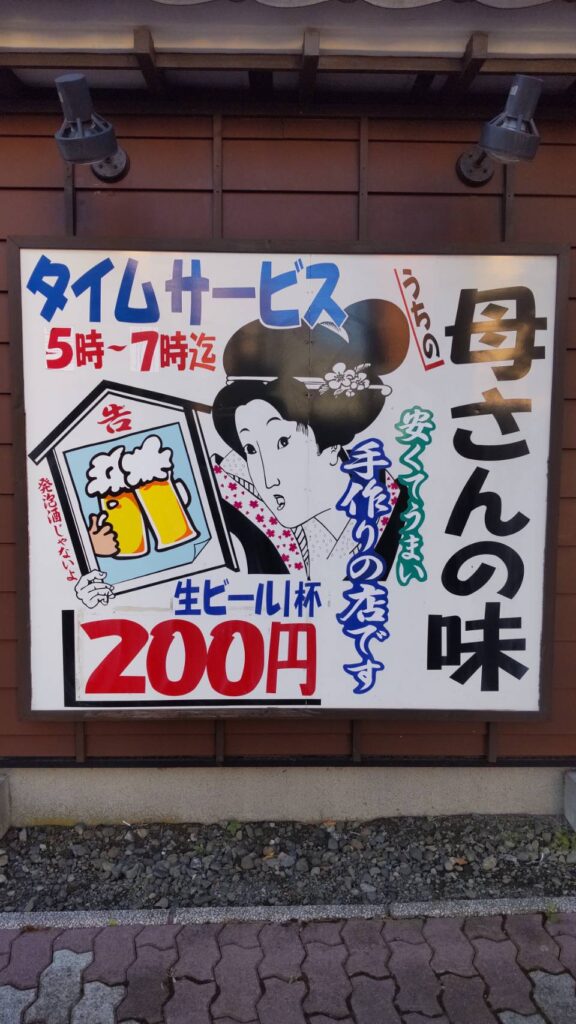 タイムサービス
5時~7時迄
告
発泡酒じゃないよ
生ビール1杯
200円
うちの
母さんの味
安くてうまい
手作りの店です